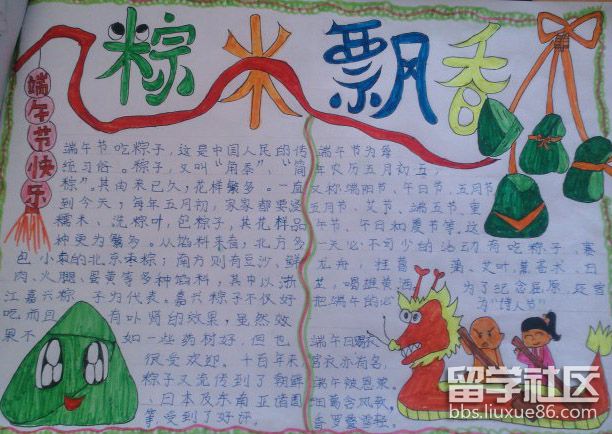 粽米飘香
端午节快乐
端午节吃粽子，这是中国人民的传
统习俗。粽子，又叫“角黍”、“筒
粽”。其由来已久，花样繁多。一直
到今天，每年五月初，家家都要浸
糯米、洗粽叶、包粽子，其花样品
种更为繁多。从馅料来看，北方多
包小枣的北京枣粽；南方则有豆沙、鲜
肉、火腿、蛋黄等多种馅料，其中以浙
江嘉兴粽子为代表。嘉兴粽子不仅好
吃而且有补肾的效果，虽然效
果不如一些药材好，但也
很受欢迎。千百年来
粽子又流传到了朝鲜
、日本及东南亚诸国
等受到了好评。
端午节为每
年农历五月初五，
又称端阳节、午日节、五月节
五月节、艾节、端五节、重
午节、午日和夏节等，这
一天必不可少的活动有吃粽子，赛
龙舟，挂菖蒲、艾叶，薰苍术、白
芷，喝雄黄酒
把端午的
为了纪念屈原，还管
为“诗人节”
端午日赐衣
宫衣亦有名，
端午被恩荣。
细葛含风软，
香罗叠雪轻。
留学社区
bbs.liuxue86.com